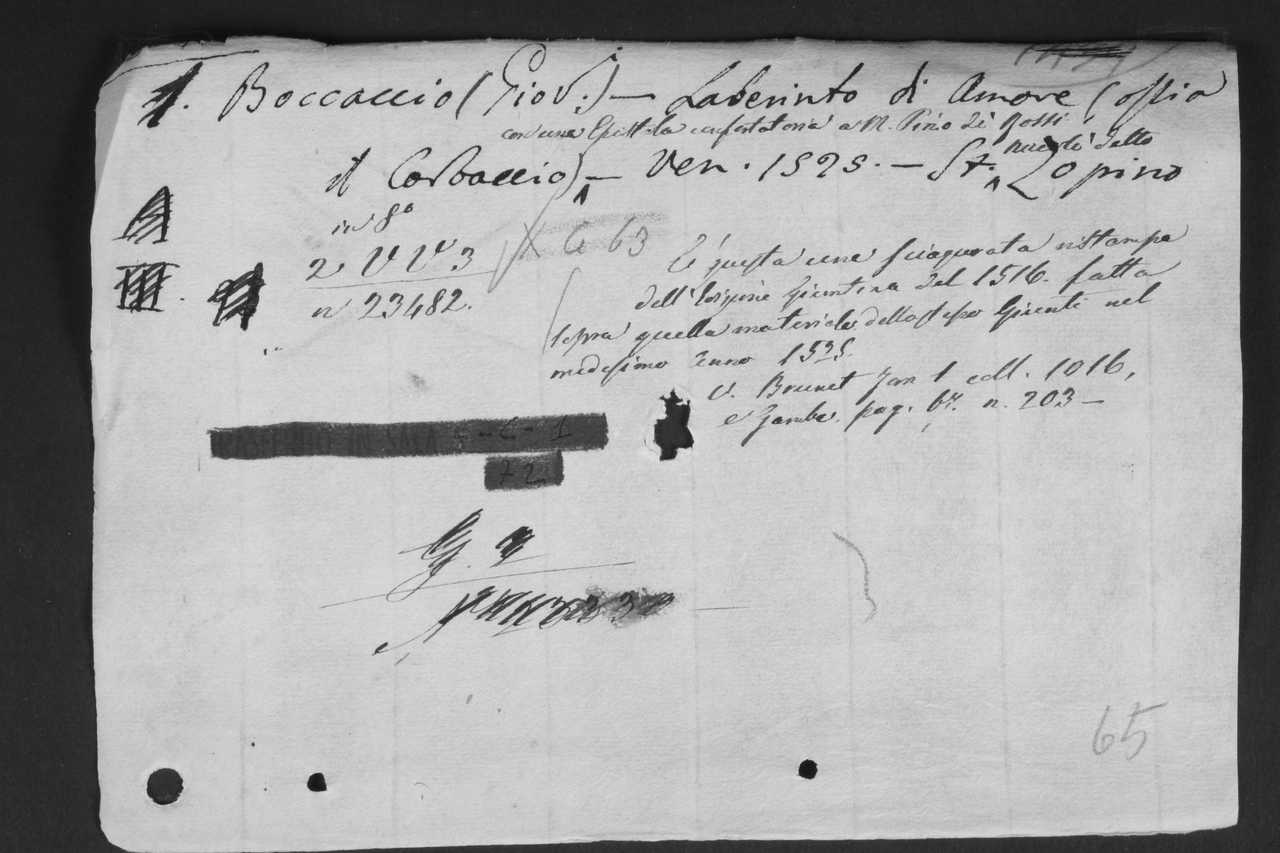 1. Boccaccio (Giov.) — Laberinto di Amore (ossia
con una Epistola confortatoria a M. Pino de Rossi
il Corbaccio) — Ven. 1525. — St. Nicolò detto Zopino
in 8°
2 V V 3
X G 63
n 23482.
È questa una sciagurata ristampa
dell'edizione Giuntina del 1516. fatta
sopra quella materiale dello stesso Giunti nel
medesimo anno 1525.
V. Brunet Tom 1 coll. 1016,
e Gamba. pag. 67. n. 203 —
TRASFERITO IN SALA 5 - C - 1
72
G.
65